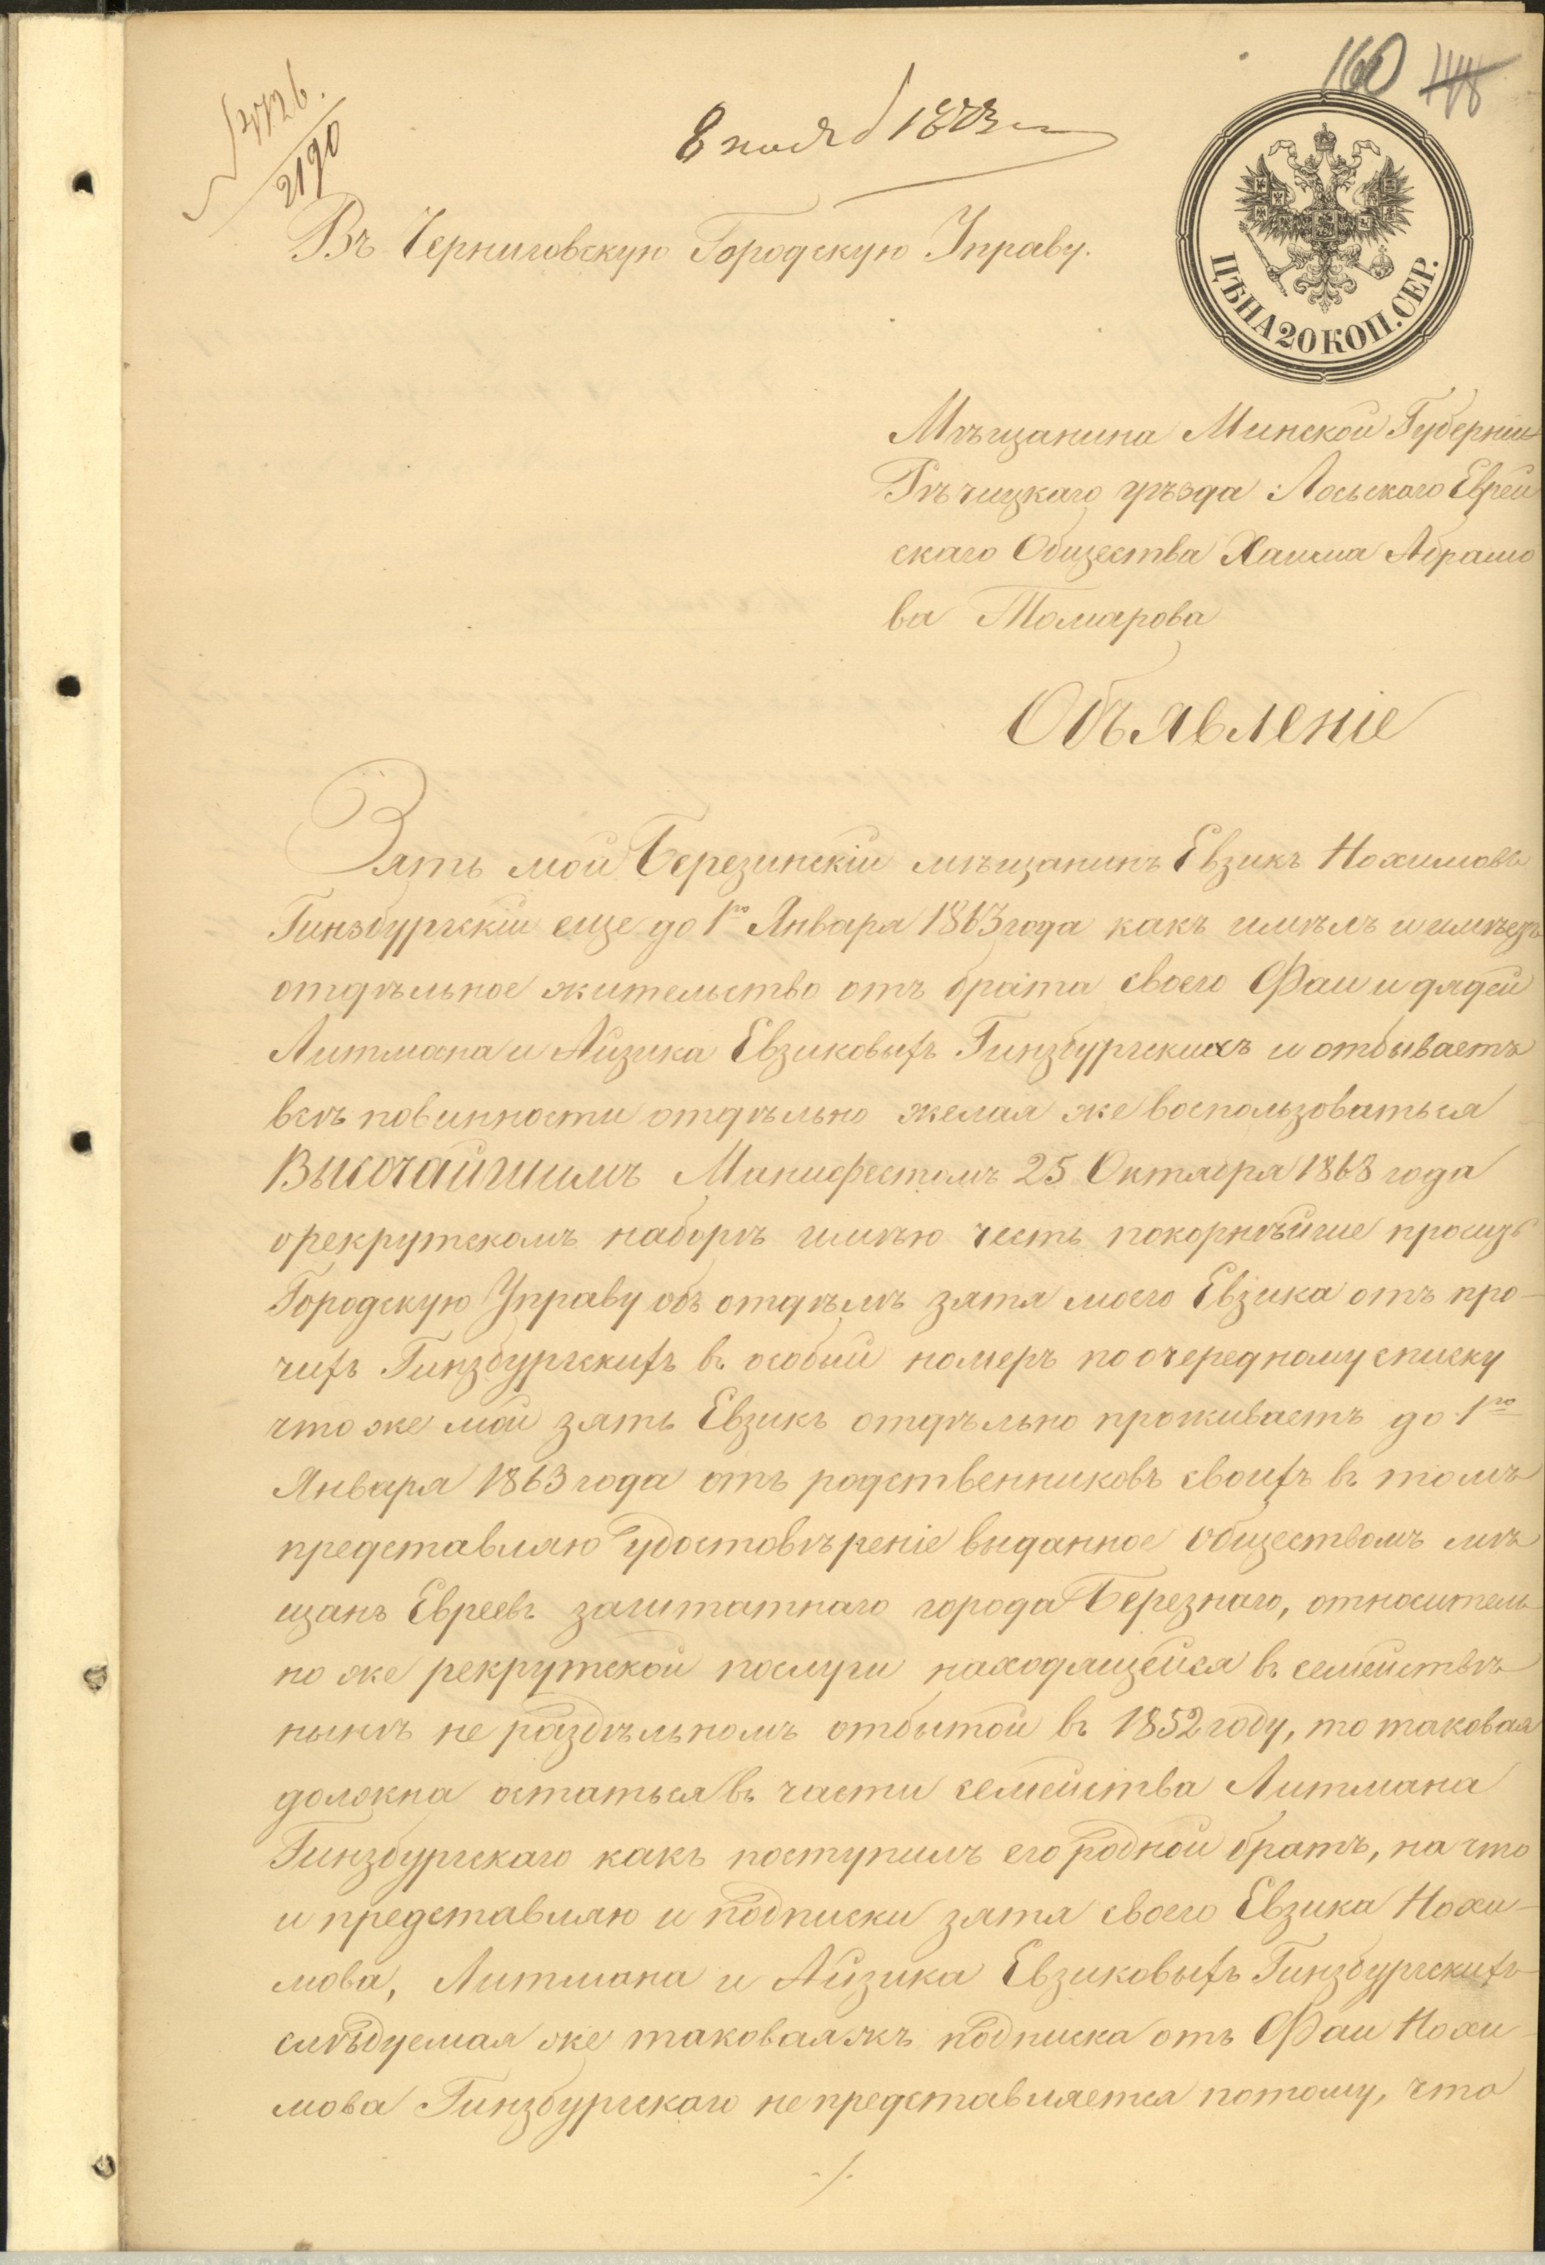 160 148
2726.
2190
8 нояб 1873 г
Въ Черниговскую Городскую Управу.
ЦѢНА 20 КОП. СЕР.
Мѣщанина Минской Губерніи
Рѣчицкаго уѣзда Лоськаго Еврей
скаго Общества Хаима Абрамо
ва Томарова
Объявленіе
Зять мой Березинскій мѣщанинъ Евзикъ Нохимовъ
Гинзбургскій еще до 1го Января 1863 года какъ имѣлъ и имѣетъ
отдѣльное жительство отъ брата своего Фаи и дядей
Литмана и Айзика Евзиковыхъ Гинзбургскихъ и отбываетъ
всѣ повинности отдѣльно желая же воспользоваться
Высочайшимъ Манифестомъ 25 Октября 1868 года
о рекрутскомъ наборѣ имѣю честь покорнѣйше просить
Городскую Управу объ отдѣлѣ зятя моего Евзика отъ про-
чихъ Гинзбургскихъ въ особый номеръ по очередному списку
что же мой зять Евзикъ отдѣльно проживаетъ до 1го
Января 1863 года отъ родственниковъ своихъ въ томъ
представляю удостовѣреніе выданное обществомъ мѣ
щанъ Евреевъ заштатнаго города Березнаго, относитель
но же рекрутской послуги находящейся въ семействѣ
нынѣ не раздѣльномъ отбытой въ 1852 году, то таковая
должна остаться въ части семейства Литмана
Гинзбургскаго какъ поступилъ его родной братъ, на что
и представляю и подписки зятя своего Евзика Нохи-
мова, Литмана и Айзика Евзиковыхъ Гинзбургскихъ
слѣдуемая же таковая жъ подписка отъ Фаи Нохи-
мова Гинзбургскаго не представляется потому, что
./.